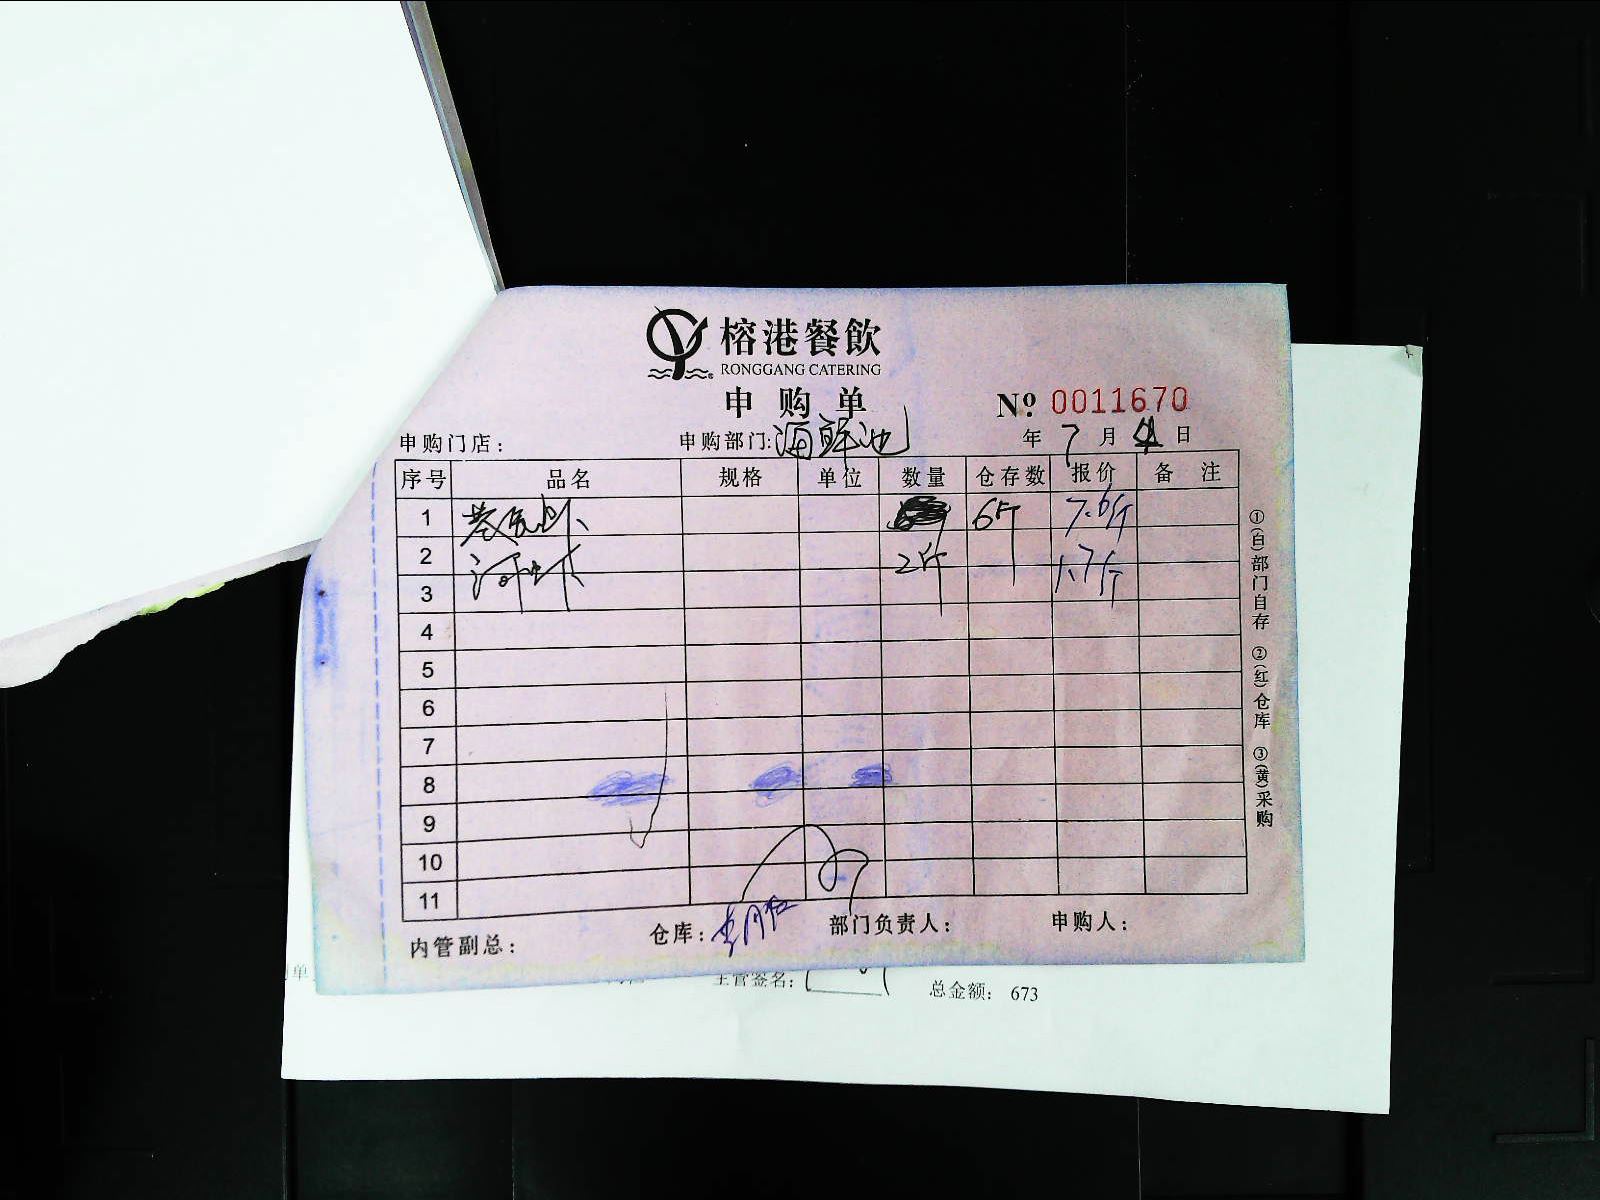 榕港餐飲
RONGGANG CATERING
申购单
Nº 0011670
申购门店： 申购部门:海鲜池 年 7 月 4 日
序号 品名 规格 单位 数量 仓存数 报价 备注
1 6斤 7.6斤
2 河虾 2斤 1.7斤
3
4
5
6
7
8
9
10
11
内管副总： 仓库： 部门负责人： 申购人：
①(白)部门自存 ②(红)仓库 ③(黄)采购
单 主管签名： 总金额： 673